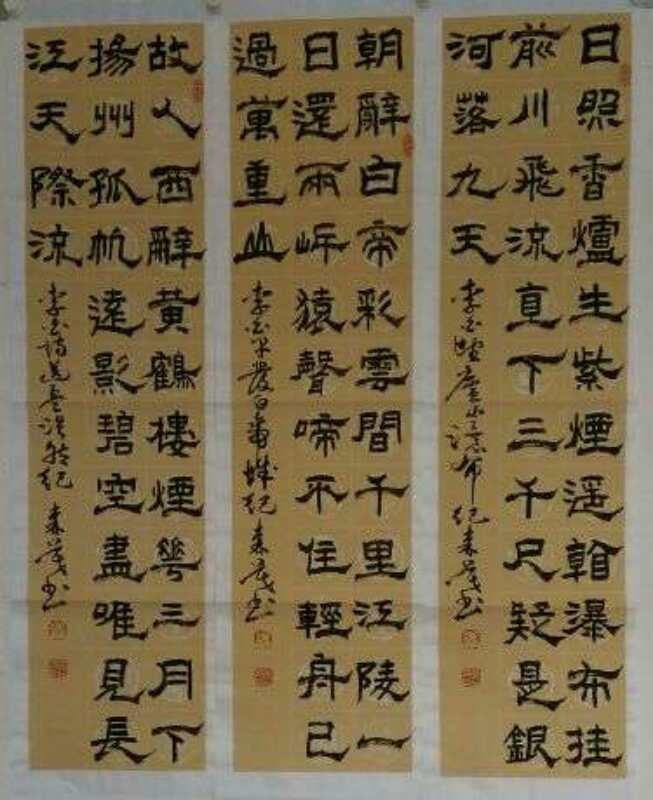 日照香爐生紫煙遥看瀑布挂
前川飛流直下三千尺疑是銀
河落九天
李白望廬山瀑布 紀茂书
朝辭白帝彩雲間千里江陵一
日還兩岸猿聲啼不住輕舟已
過萬重山
李白早發白帝城 紀茂书
故人西辭黄鶴樓煙華三月下
揚州孤帆遠影碧空盡唯見長
江天際流
李白詩送孟浩然 紀茂书